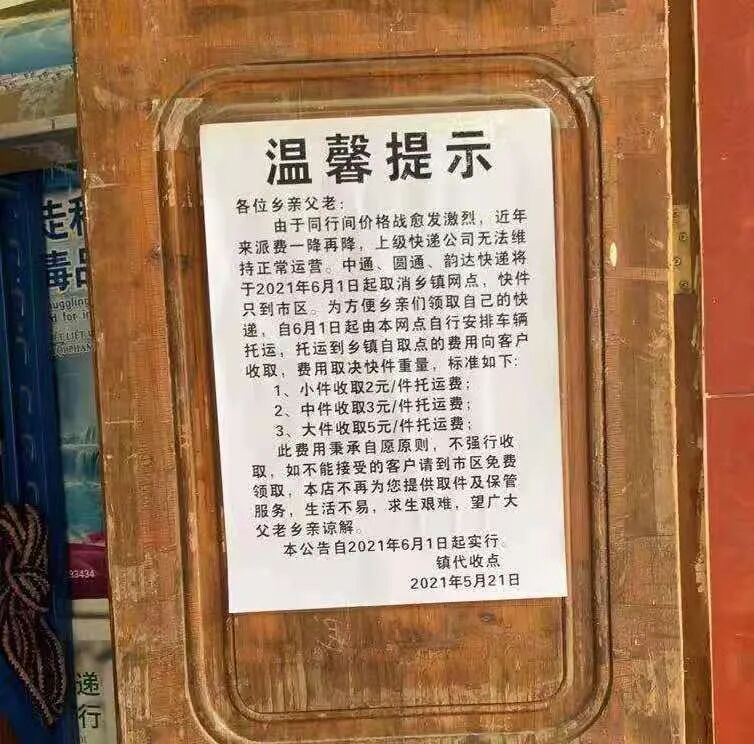 温馨提示
各位乡亲父老：
由于同行间价格战愈发激烈，近年
来派费一降再降，上级快递公司无法维
持正常运营。中通、圆通、韵达快递将
于2021年6月1日起取消乡镇网点，快件
只到市区。为方便乡亲们领取自己的快
递，自6月1日起由本网点自行安排车辆
托运，托运到乡镇自取点的费用向客户
收取，费用取决快件重量，标准如下：
1、小件收取2元/件托运费；
2、中件收取3元/件托运费；
3、大件收取5元/件托运费；
此费用秉承自愿原则，不强行收
取，如不能接受的客户请到市区免费
领取，本店不再为您提供取件及保管
服务，生活不易，求生艰难，望广大
父老乡亲谅解。
本公告自2021年6月1日起实行。
镇代收点
2021年5月21日
毒品
uggling
d for in
93434
递
行